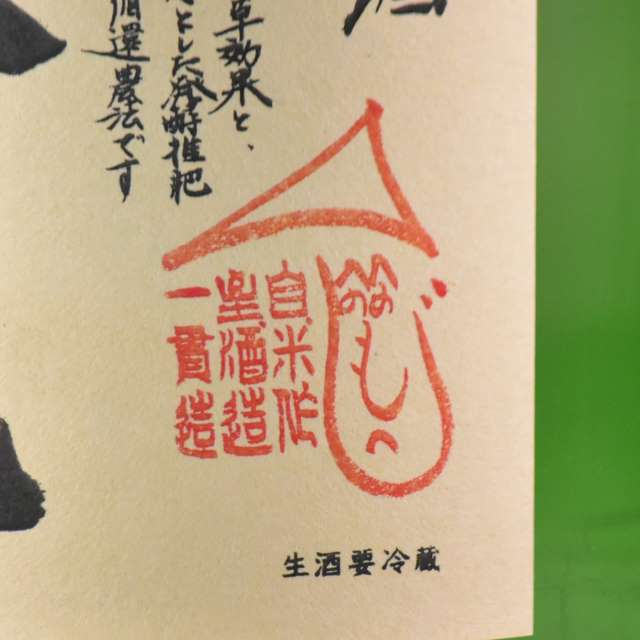 草効果と、
とした発酵堆肥
循還農法です
へのへのもへじ
自米作
酒造
一貫造
生酒要冷蔵